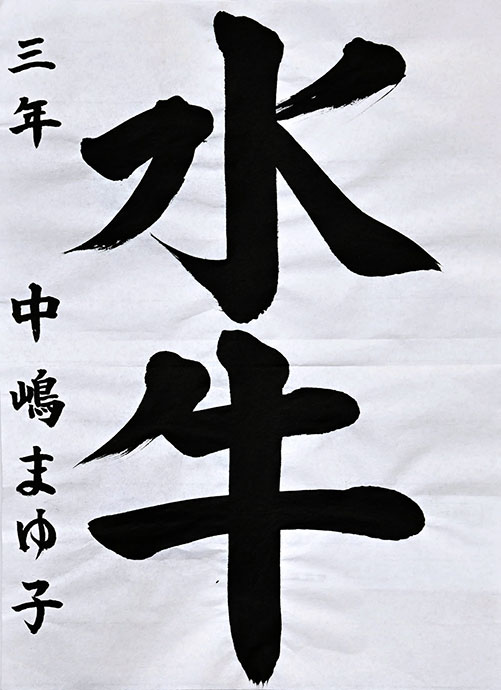 水牛
三年 中嶋まゆ子